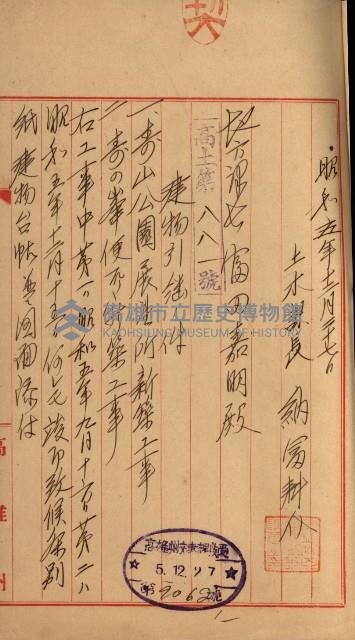 契
昭和五年十二月二十七日
土木課長 納富耕介
地方課長 富田嘉明殿
高土築八八一號
建物引継ノ件
一、壽山公園展望所新築工事
二、壽山峯便所新築工事
右工事中第一ハ昭和五年九月十六日第二ハ
昭和五年十二月十七日何レモ竣功致候條別
紙建物台帳並図面添付
高雄州
5.12.27
第2062號
高雄市立歷史博物館
KAOHSIUNG MUSEUM OF HISTORY